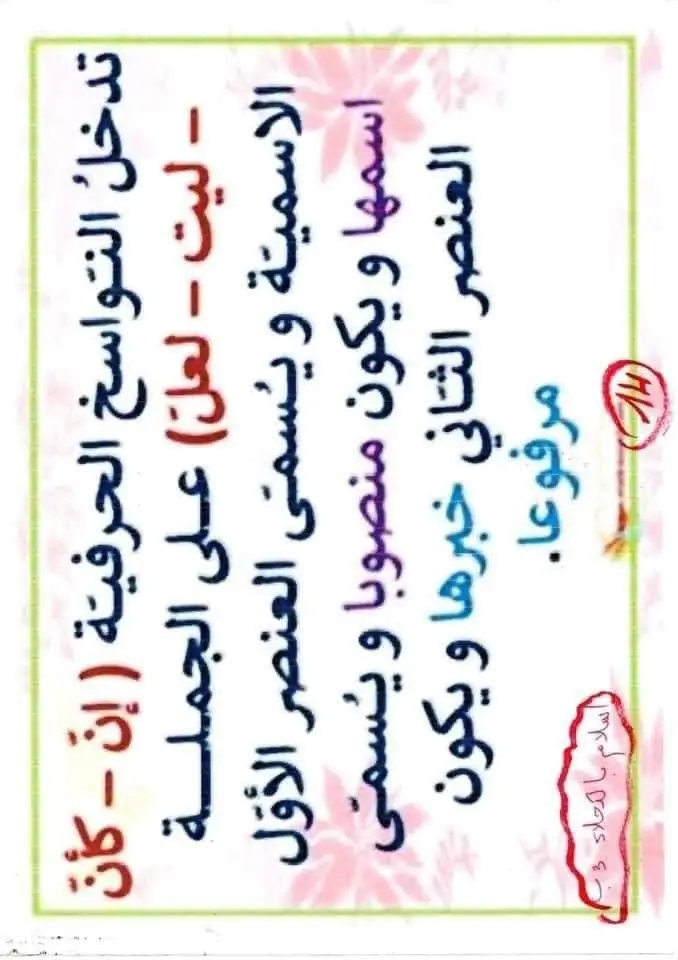 تدخلُ النّواسخ الحرفيّة ( إنّ – كأنّ
– ليت – لعلّ) على الجملـــة
الاسميّة و يُسمّى العنصر الأوّل
اسمها و يكون منصوبا و يُسمّى
العنصر الثّاني خبرها و يكون
مرفوعا.
14
اسلام